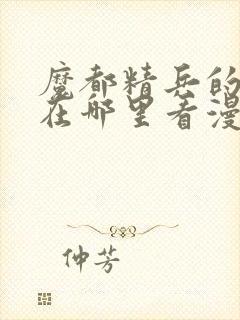 魔都精兵的
在哪里看漫
仲芳